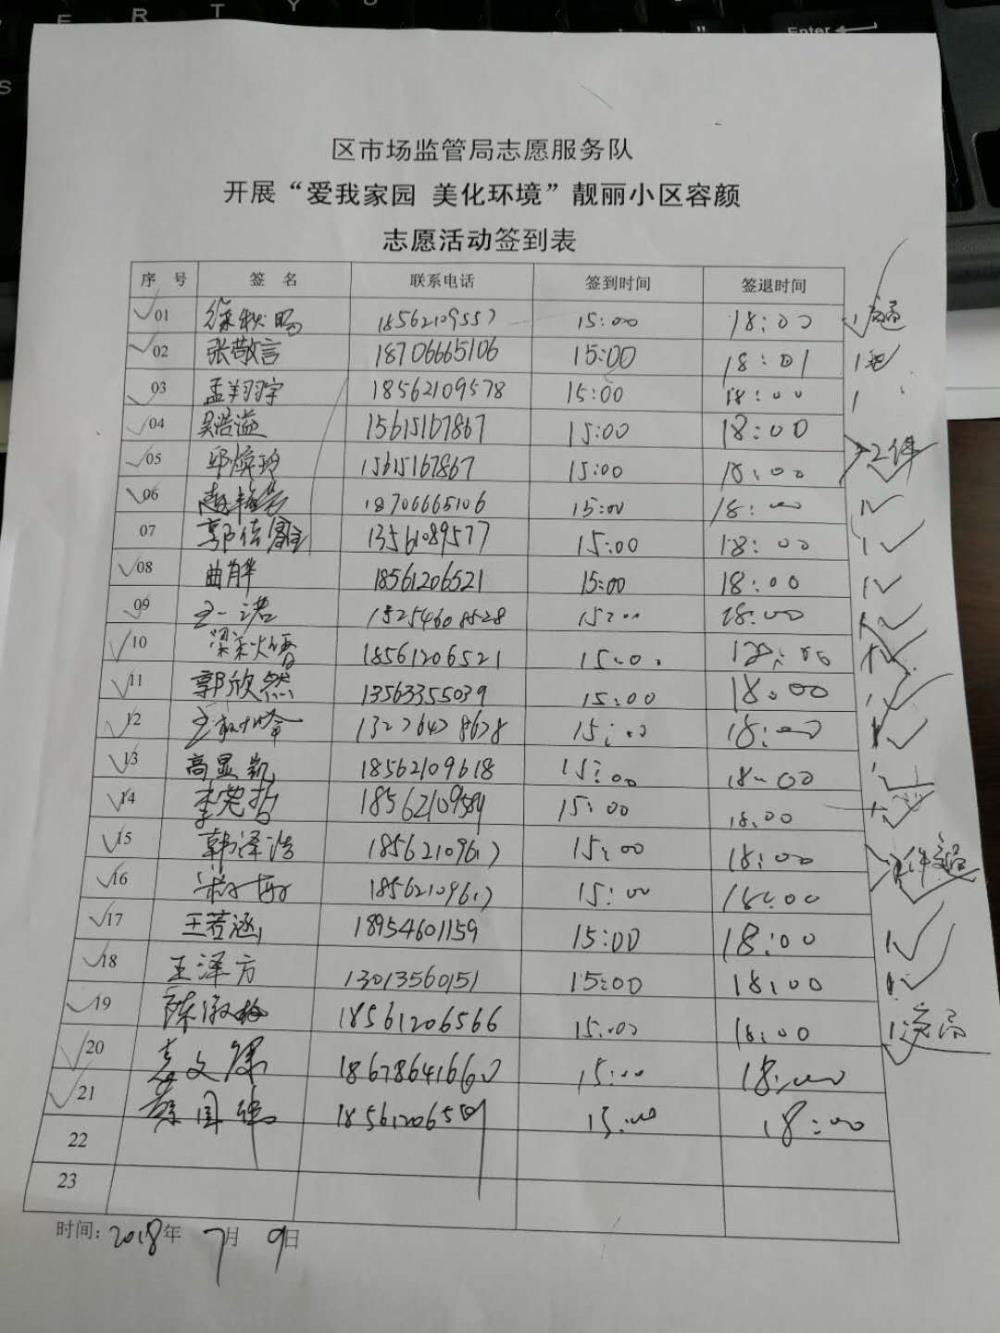 区市场监管局志愿服务队
开展“爱我家园 美化环境”靓丽小区容颜
志愿活动签到表
序 号 签 名 联系电话 签到时间 签退时间
01 徐秋 18562109557 15:00 18:00
02 张敬言 18706665106 15:00 18:01
03 孟翔宇 18562109578 15:00 18:00
04 吴浩溢 15615167867 15:00 18:00
05 邱 15615167867 15:00 18:00
06 18706665106 15:00 18:00
07 郭倍 13561089577 15:00 18:00
08 曲 18561206521 15:00 18:00
09 王一诺 15254608528 15:00 18:00
10 梁 18561206521 15:00 18:00
11 郭欣然 13563355039 15:00 18:00
12 王 15:00 18:00
13 高显凯 18562109618 15:00 18:00
14 李 哲 18562109584 15:00 18:00
15 韩泽浩 18562109617 15:00 18:00
16 18562109617 15:00 18:00
17 王若涵 18954601159 15:00 18:00
18 王泽方 13013560151 15:00 18:00
19 陈淑梅 18561206566 15:00 18:00
20 文 18678641660 15:00 18:00
21 国 15:00 18:00
22
23
时间: 2018年 7月 9日